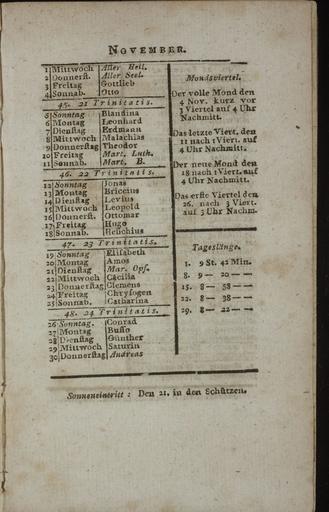 NOVEMBER.
1 Mittwoch Aller Heil.
2 Donnerſt. Aller Seel.
3 Freitag Gottlieb
4 Sonnab. Otto
45. 21 Trinitatis.
5 Sonntag Blandina
6 Montag Leonhard
7 Dienſtag Erdmann
8 Mittwoch Malachias
9 Donnerſtag Theodor
10 Freitag Mart. Luth.
11 Sonnab. Mart. B.
46. 22 Trinitatis.
12 Sonntag Jonas
13 Montag Briccius
14 Dienſtag Levius
15 Mittwoch Leopold
16 Donnerſt. Ottomar
17 Freitag Hugo
18 Sonnab. Heſichius
47. 23 Trinitatis.
19 Sonntag Eliſabeth
20 Montag Amos
21 Dienſtag Mar. Opf.
22 Mittwoch Cäcilia
23 Donnerſtag Clemens
24 Freitag Chryſogen
25 Sonnab. Catharina
48. 24 Trinitatis.
26 Sonntag. Conrad
27 Montag Buſſo
28 Dienſtag Günther
29 Mittwoch Saturin
30 Donnerſtag Andreas
Mondsviertel.
Der volle Mond den
4 Nov. kurz vor
1 Viertel auf 4 Uhr
Nachmitt.
Das letzte Viert. den
11 nach 1 Viert. auf
4 Uhr Nachmitt.
Der neue Mond den
18 nach 1 Viert. auf
4 Uhr Nachmitt.
Das erſte Viertel den
26. nach 3 Viert.
auf 3 Uhr Nachm.
Tageslänge.
1. 9 St. 42 Min.
8. 9 — 20 — —
15. 8 — 58 — —
22. 8 — 38 — —
29. 8 — 22 — —
Sonneneintritt : Den 21. in den Schützen.